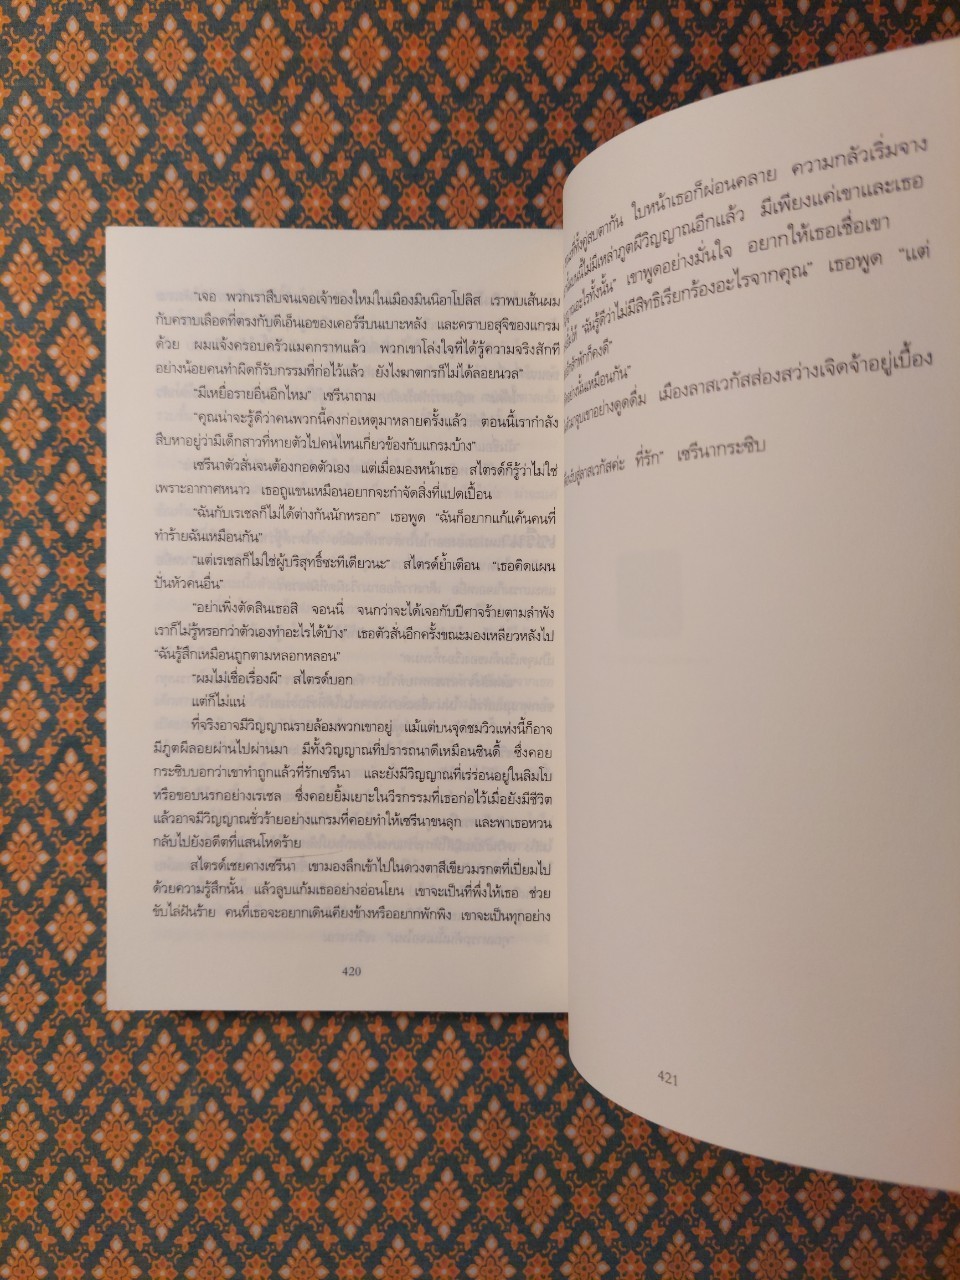 "เจอ พวกเราสืบจนเจอเจ้าของใหม่ในเมืองมินนิอาโปลิส เราพบเส้นผม
กับคราบเลือดที่ตรงกับดีเอ็นเอของเคอร์รีบนเบาะหลัง และคราบอสุจิของแกรม
ด้วย ผมแจ้งครอบครัวแมคกราทแล้ว พวกเขาโล่งใจที่ได้รู้ความจริงสักที
อย่างน้อยคนทำผิดก็รับกรรมที่ก่อไว้แล้ว ยังไงฆาตกรก็ไม่ได้ลอยนวล"
"มีเหยื่อรายอื่นอีกไหม" เซรีนาถาม
"คุณน่าจะรู้ดีว่าคนพวกนี้คงก่อเหตุมาหลายครั้งแล้ว ตอนนี้เรากำลัง
สืบหาอยู่ว่ามีเด็กสาวที่หายตัวไปคนไหนเกี่ยวข้องกับแกรมบ้าง"
เซรีนาตัวสั่นจนต้องกอดตัวเอง แต่เมื่อมองหน้าเธอ สไตรด์ก็รู้ว่าไม่ใช่
เพราะอากาศหนาว เธอถูแขนเหมือนอยากจะกำจัดสิ่งที่แปดเปื้อน
"ฉันกับเรเชลก็ไม่ได้ต่างกันนักหรอก" เธอพูด "ฉันก็อยากแก้แค้นคนที่
ทำร้ายฉันเหมือนกัน"
"แต่เรเชลก็ไม่ใช่ผู้บริสุทธิ์ซะทีเดียวนะ" สไตรด์ย้ำเตือน "เธอคิดแผน
ปั่นหัวคนอื่น"
"อย่าเพิ่งตัดสินเธอสิ จอนนี่ จนกว่าจะได้เจอกับปีศาจร้ายตามลำพัง
เราก็ไม่รู้หรอกว่าตัวเองทำอะไรได้บ้าง" เธอตัวสั่นอีกครั้งขณะมองเหลียวหลังไป
"ฉันรู้สึกเหมือนถูกตามหลอกหลอน"
"ผมไม่เชื่อเรื่องผี" สไตรด์บอก
แต่ก็ไม่แน่
ที่จริงอาจมีวิญญาณรายล้อมพวกเขาอยู่ แม้แต่บนจุดชมวิวแห่งนี้ก็อาจ
มีภูตผีลอยผ่านไปผ่านมา มีทั้งวิญญาณที่ปรารถนาดีเหมือนซินดี้ ซึ่งคอย
กระซิบบอกว่าเขาทำถูกแล้วที่รักเซรีนา และยังมีวิญญาณที่เร่ร่อนอยู่ในลิมโบ
หรือขอบนรกอย่างเรเชล ซึ่งคอยยิ้มเยาะในวีรกรรมที่เธอก่อไว้เมื่อยังมีชีวิต
แล้วอาจมีวิญญาณชั่วร้ายอย่างแกรมที่คอยทำให้เซรีนาขนลุก และพาเธอหวน
กลับไปยังอดีตที่แสนโหดร้าย
สไตรด์เชยคางเซรีนา เขามองลึกเข้าไปในดวงตาสีเขียวมรกตที่เปี่ยมไป
ด้วยความรู้สึกนั้น แล้วลูบแก้มเธออย่างอ่อนโยน เขาจะเป็นที่พึ่งให้เธอ ช่วย
ขับไล่ฝันร้าย คนที่เธอจะอยากเดินเคียงข้างหรืออยากพักพิง เขาจะเป็นทุกอย่าง
420
ทั้งคู่สบตากัน ใบหน้าเธอก็ผ่อนคลาย ความกลัวเริ่มจาง
ไม่มีเหล่าภูตผีวิญญาณอีกแล้ว มีเพียงแค่เขาและเธอ
อะไรทั้งนั้น" เขาพูดอย่างมั่นใจ อยากให้เธอเชื่อเขา
"ฉันรู้ดีว่าไม่มีสิทธิเรียกร้องอะไรจากคุณ" เธอพูด "แต่
สักพักก็คงดี"
อย่างนั้นเหมือนกัน"
จูบเขาอย่างดูดดื่ม เมืองลาสเวกัสส่องสว่างเจิดจ้าอยู่เบื้อง
สู่ลาสเวกัสค่ะ ที่รัก" เซรีนากระซิบ
421